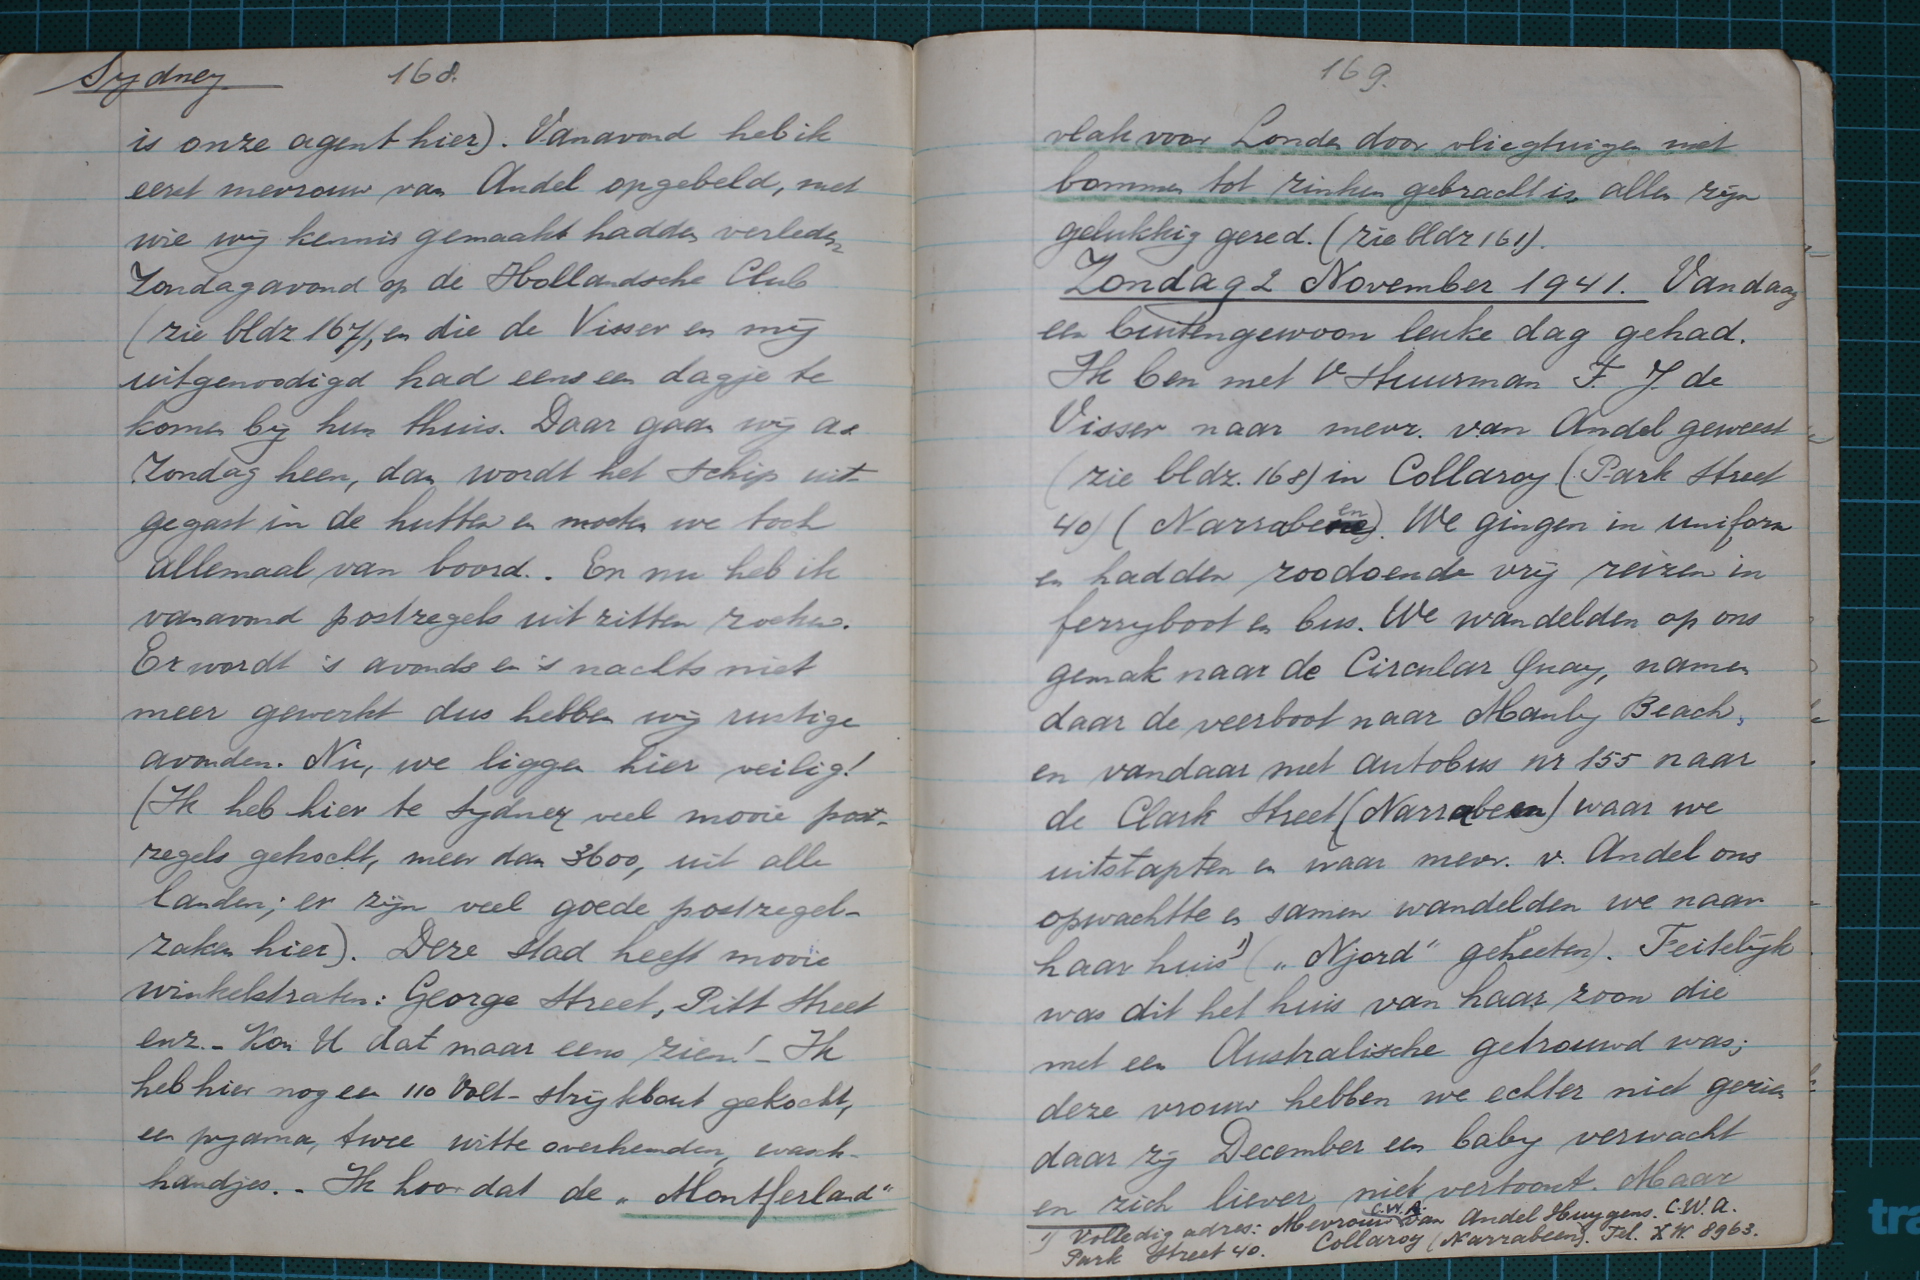 Sydney 168.
is onze agent hier). Vanavond heb ik
eerst mevrouw van Andel opgebeld, met
wie wij kennis gemaakt hadden verleden
Zondagavond op de Hollandsche Club
(zie bldz 167), en die de Visser en mij
uitgenoodigd had eens een dagje te
komen bij hun thuis. Daar gaan wij a.s.
Zondag heen, dan wordt het schip uit-
gegast in de hutten en moeten we toch
allemaal van boord. . En nu heb ik
vanavond postzegels uit zitten zoeken.
Er wordt 's avonds en 's nachts niet
meer gewerkt dus hebben wij rustige
avonden. Nu, we liggen hier veilig!
(Ik heb hier te Sydney veel mooie post-
zegels gekocht, meer dan 3600, uit alle
landen; er zijn veel goede postzegel-
zaken hier). Deze stad heeft mooie
winkelstraten: George Street, Pitt Street
enz. - Kon U dat maar eens zien! - Ik
heb hier nog een 110 Volt - strijkbout gekocht,
een pyama, twee witte overhemden, wasch-
handjes. - Ik hoor dat de „Montferland"
169.
vlak voor Londen door vliegtuigen met
bommen tot zinken gebracht is, allen zijn
gelukkig gered. (zie bldz 161).
Zondag 2 November 1941. Vandaag
een buitengewoon leuke dag gehad.
Ik ben met Stuurman F. J. de
Visser naar mevr. van Andel geweest
(zie bldz. 168) in Collaroy (Park Street
40) (Narrabeen). We gingen in uniform
en hadden zoodoende vrij reizen in
ferryboot en bus. We wandelden op ons
gemak naar de Circular Quay, namen
daar de veerboot naar Manly Beach,
en vandaar met autobus nr 155 naar
de Clark Street (Narrabeen) waar we
uitstapten en waar mevr. v. Andel ons
opwachtte en samen wandelden we naar
haar huis ¹) („Njord" geheeten). Feitelijk
was dit het huis van haar zoon die
met een Australische getrouwd was;
deze vrouw hebben we echter niet gezien
daar zij December een baby verwacht
en zich liever niet vertoont. Maar
¹) Volledig adres: Mevrouw C.W.A. van Andel Huygens. C.W.A.
Park Street 40. Collaroy (Narrabeen). Tel. X.W. 8963.
tra